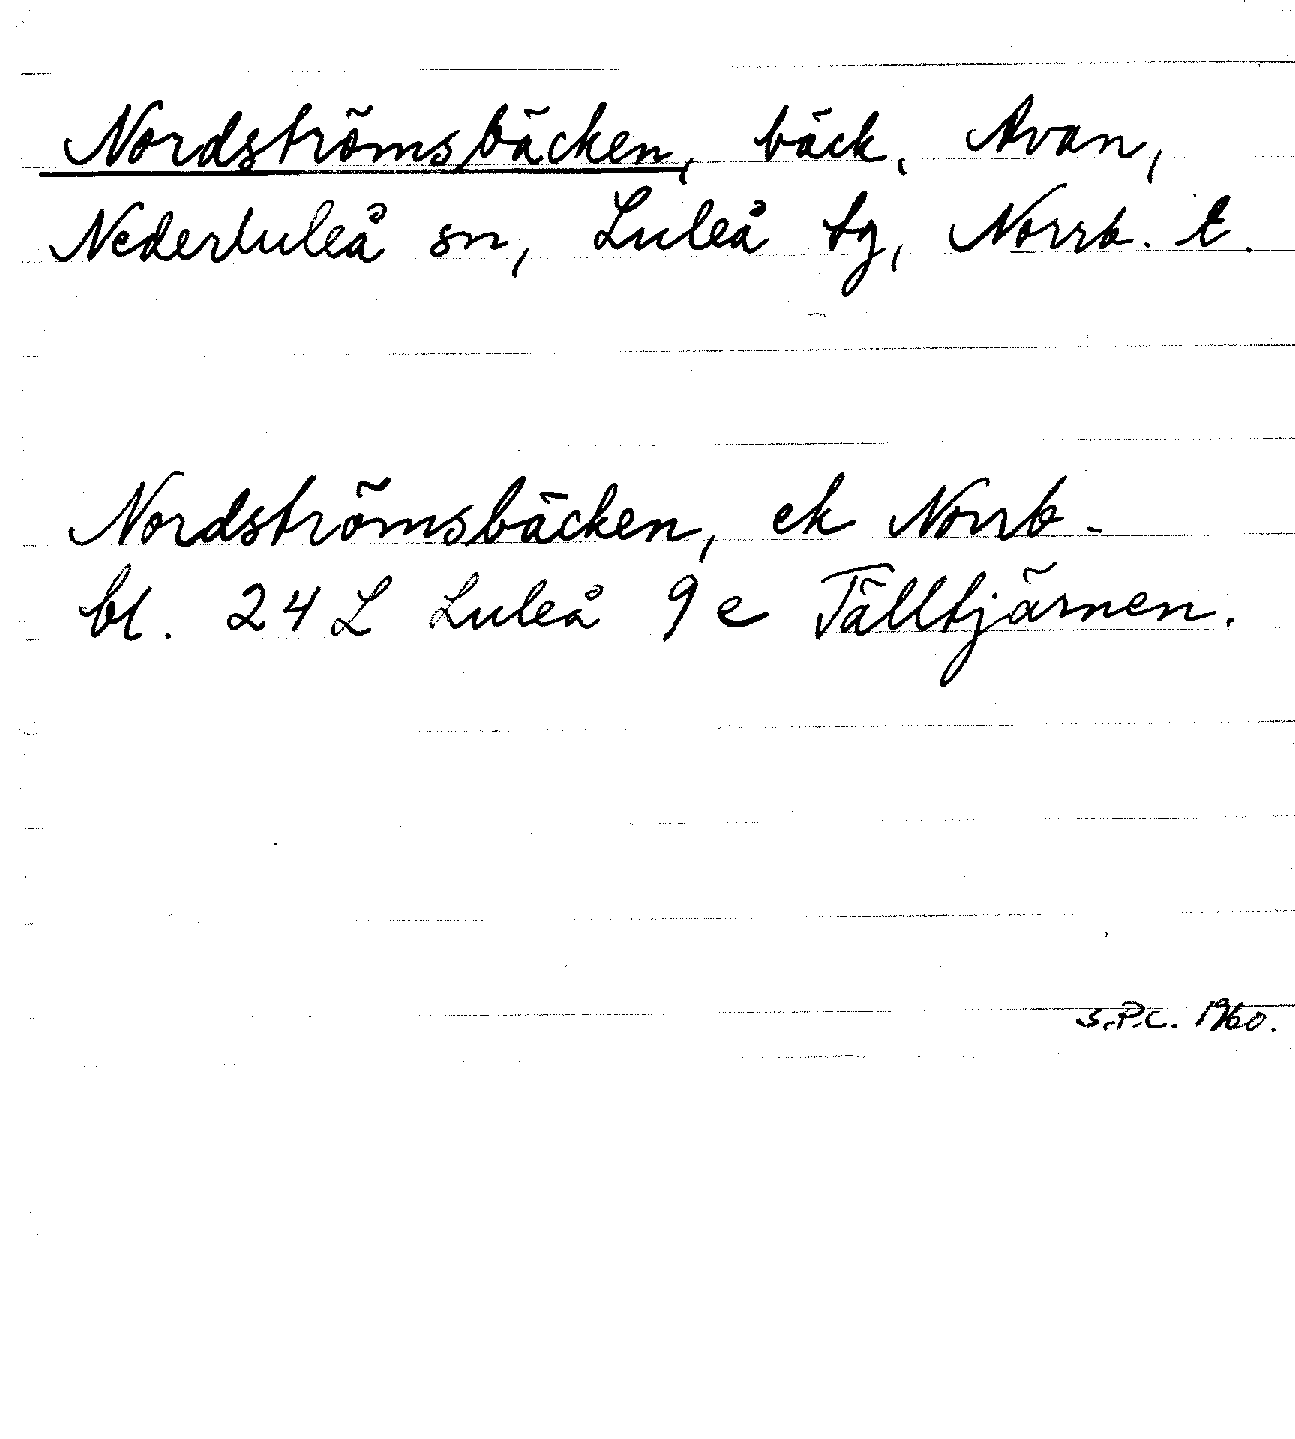 Nordströmsbäcken, bäck, Avan,
Nederluleå sn, Luleå tg, Norrb. l.
Nordströmsbäcken, ek Norrb.
bl. 24 L Luleå 9 e Tälltjärnen.
S.P.C. 1960.